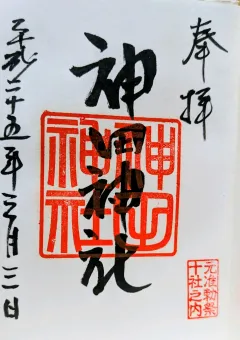 奉拝
神田神社
神田神社
元准勅祭
十社之内
平成二十五年三月三日